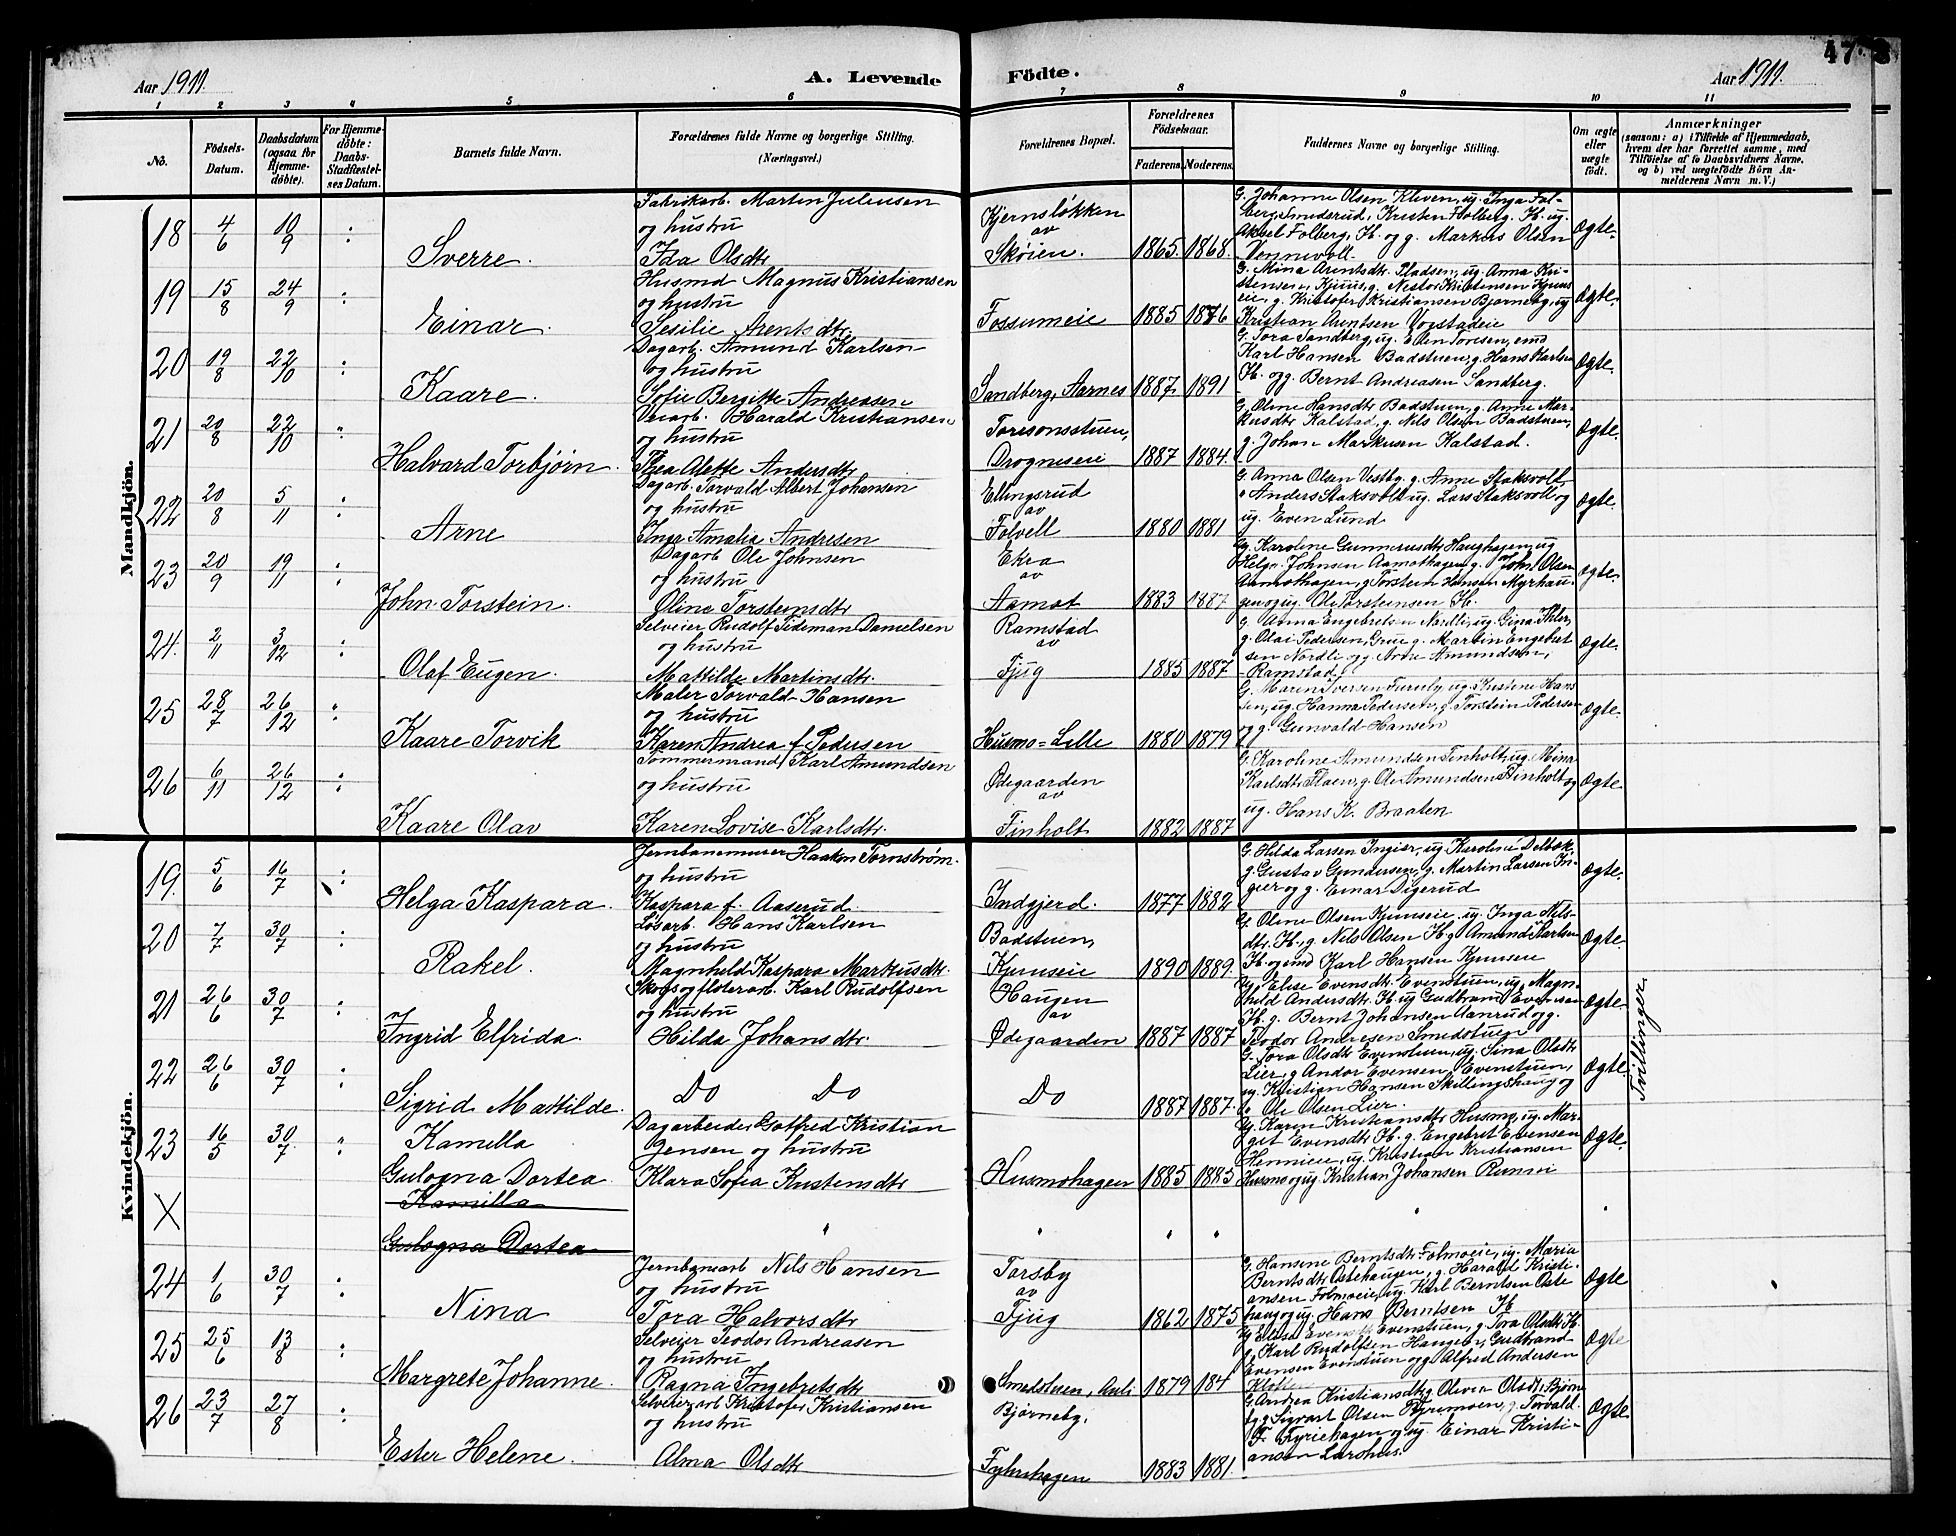 47.
Aar 1911.
A. Levende Födte.
Aar 1911.
1 2 3 4 5 6 7 8 9 10 11
Nö.
Födsels-Datum.
Daabsdatum (ogsaa for Hjemme-döbte).
For Hjemme-döbte: Daabs-Stadfæstel-ses Datum.
Barnets fulde Navn.
Forældrenes fulde Navne og borgerlige Stilling. (Næringsvei.)
Forældrenes Bopæl.
Forældrenes Födselsaar.
Faderens. Moderens.
Faddernes Navne og borgerlige Stilling.
Om ægte eller uægte födt.
Anmærkninger
(saasom: a) i Tilfælde af Hjemmedaab, hvem der har forrettet samme, med Tilföielse af to Daabsvidners Navne, og b) ved uægtefödte Börn An-melderens Navn m. V.)
Mandkjön.
18 4/6 10/9 Sverre.
Fabrikarb. Martin Juliussen
og hustru
Ida Olsdtr.
Kjernsløkken
av
Skøien. 1865. 1868.
G. Johanne Olsen Kleven, ug. Inga Fol-
berg Smederud, Kristen Folberg. Ib. ug.
Aksel Folberg, Ib. og g. Markus Olsen
Vennevoll. Ægte.
19 15/8 24/9 Einar.
Husmd Magnus Kristiansen
og hustru
Sesilie Arentsdtr.
Fossumeie 1885 1876
G. Mina Arentsdtr. Pladsen, ug. Anna Kri-
stensen, Kjuus, g. Nestor Kristensen
eie, g. Kristofer Kristiansen Bjørneby, ug
Kristian Arntsen Ægte.
20 19/8 22/10 Kaare.
Dagarb. Amund Karlsen
og hustru
Sofie Bergitte Andreasen
Sandberg, Aarnes 1887. 1891
G. Tora Sandberg, ug. Ellen Toresen, emd
Karl Hansen Badstuen, g. Hans Karlsen
Ib. og g. Bernt Andreasen Sandberg. Ægte.
21 20/8 22/10 Halvard Torbjørn.
Harald Kristiansen
og hustru
Thea Alette Andersdtr
Toresonsstuen,
Drogneseie 1887 1884.
G. Oline Hansdtr Badstuen, g. Anne Mar-
kusdtr Kalstad, g. Nils Olsen Badstuen,
g. Johan Markusen Kalstad. Ægte.
22 20/8 5/11 Arne
Dagarb. Torvald Albert Johansen
og hustru
Inga Amalia Andresen
Ellingsrud
av
Folvell 1880 1881
G. Anna Olsen Vestby. g. Anne Staksvold,
Anders Staksvold, ug. Lars Staksvoll og
ug. Even Lund Ægte.
23 20/9 19/11 John Torstein.
Dagarb Ole Johnsen
og hustru
Oline Torsteinsdtr
Ekra
av
Aamot 1883 1887
Ug. Karoline Gunnerusdtr Haughagen, ug
Helge Johnsen Aamothagen, g. John Olsen
Aamothagen, g. Torstein Hansen Myrhau-
gen og ug. Ole Torsteinsen Ib. Ægte.
24. 2/11 3/12 Olaf Eugen.
Selveier Rudolf Tideman Danielsen
og hustru
Mattilde Martinsdtr.
Ramstad
av
Fjug 1885 1887
G. Anna Engebretsen Nordli, ug. Gina Thler,
g. Olai Pedersen, Grue g. Martin Engebret
sen Nordli og g. Arne Amundsen,
Ramstad, Ægte.
25 28/7 26/12 Kaare Torvik
Maler Torvald Hansen
og hustru
Karen Andrea f. Pedersen
Husmo=Lille 1880 1879
G. Maren Iversen Furuly, ug. Kristene Hans
sen, ug. Hanna Pedersen, g. Torstein Pedersen
og g. Gunvald Hansen Ægte.
26 6/11 26/12 Kaare Olav
Tømmermand Karl Amundsen
og hustru
Karen Lovise Karlsdtr.
Ødegaarden
av
Finholt 1882 1887
G. Karoline Amundsen Finholt, ug. Mina
Karlsdtr Flaen, g. Ole Amundsen Finholt og
ug. Hans K. Braaten Ægte.
Kvindekjön.
19. 5/6 16/7 Helga Kaspara.
Jernbanemurer Haaken Tornstrøm.
og hustru
Kaspara f. Aaserud.
Indgjerd. 1877 1882
G. Hilda Larsen Ingier, ug. Karoline Delbæk,
g. Gustav Gundersen, g. Martin Larsen In-
gier og g. Einar Digerud Ægte.
20 7/7 30/7 Rakel.
Løsarb. Hans Karlsen
og hustru
Magnhild Kaspara Markusdtr.
Badstuen,
Kjernseie 1890 1889.
G. Oline Olsen Kjernseie, ug. Inga Nils-
dtr. Ib., g. Nils Olsen Ib. g Amund Karlsen
Ib og emd Karl Hansen Kjernseie Ægte.
21 26/6 30/7 Ingrid Elfrida.
Skogs og fløterarb. Karl Rudolfsen
og hustru
Hilda Johansdtr.
Haugen
av
Ødegaarden 1887 1887
Ug. Elise Evensdtr. Evenstuen, ug. Magn-
hild Andersdtr. Ib. ug Gudbrand Evensen
Ib. g. Bernt Johansen Aanrud og g.
Teodor Andresen Smedstuen Ægte.
22 26/6 30/7 Sigrid Mattilde.
Do Do
Do 1887 1887.
G. Tora Olsdtr Evenstuen, ug. Sina Olsdtr
Lier, g. Andor Evensen, Evenstuen,
ug. Kristian Hansen Skillingshaug og
Ole Olsen Lier. Ægte.
Tvillinger.
23 16/5 30/7 Kamella
Gulogna Dortea
Dagarbeider Gotfred Kristian
Jensen og hustru
Klara Sofia Kristensdtr
Husmohagen 1885 1885
Ug. Karen Kristiansdtr Husmo, ug. Mar-
git Evensdtr Ib. g. Engebret Evensen
Hennieie, ug. Kristian Kristiansen
Husmo og ug. Kristian Johansen Ægte.
X Kamilla
Gulogna Dortea
24 1/6 30/7 Nina
Jernbanearb Nils Hansen
og hustru
Tora Halvorsdtr
Torsby
av
Fjug 1862 1875
G. Hansine Berntsdtr Folmoeie, ug. Maria
Berntsdtr Østehaugen, g. Harald Kristi-
ansen Folmoeie, ug. Karl Berntsen Øste
haug og ug. Hans Berntsen Ib Ægte
25 25/6 13/8 Margrete Johanne.
Selveier Teodor Andreasen
og hustru
Ragna Ingebretsdtr
Smedstuen, Auli 1879 184
Ug Elise Evensdtr Evenstuen, g. Tora Olsdtr Ib.
g. Karl Rudolfsen Haugen, Gudbrand
Evensen Evenstuen og g Alfred Andersen
Ægte
26 23/7 27/8 Ester Helene.
Selveierarb Kristofer Kristiansen
og hustru
Alma Olsdtr
Bjørneby,
Fyhrihagen 1883 1881.
G. Andrea Kristiansdtr g. Oliven Olsdtr, Bjørne
by g. Sigvart Olsen g. Torvald
F. Fyriehagen og ug. Einar Kristi-
ansen Larshus. Ægte